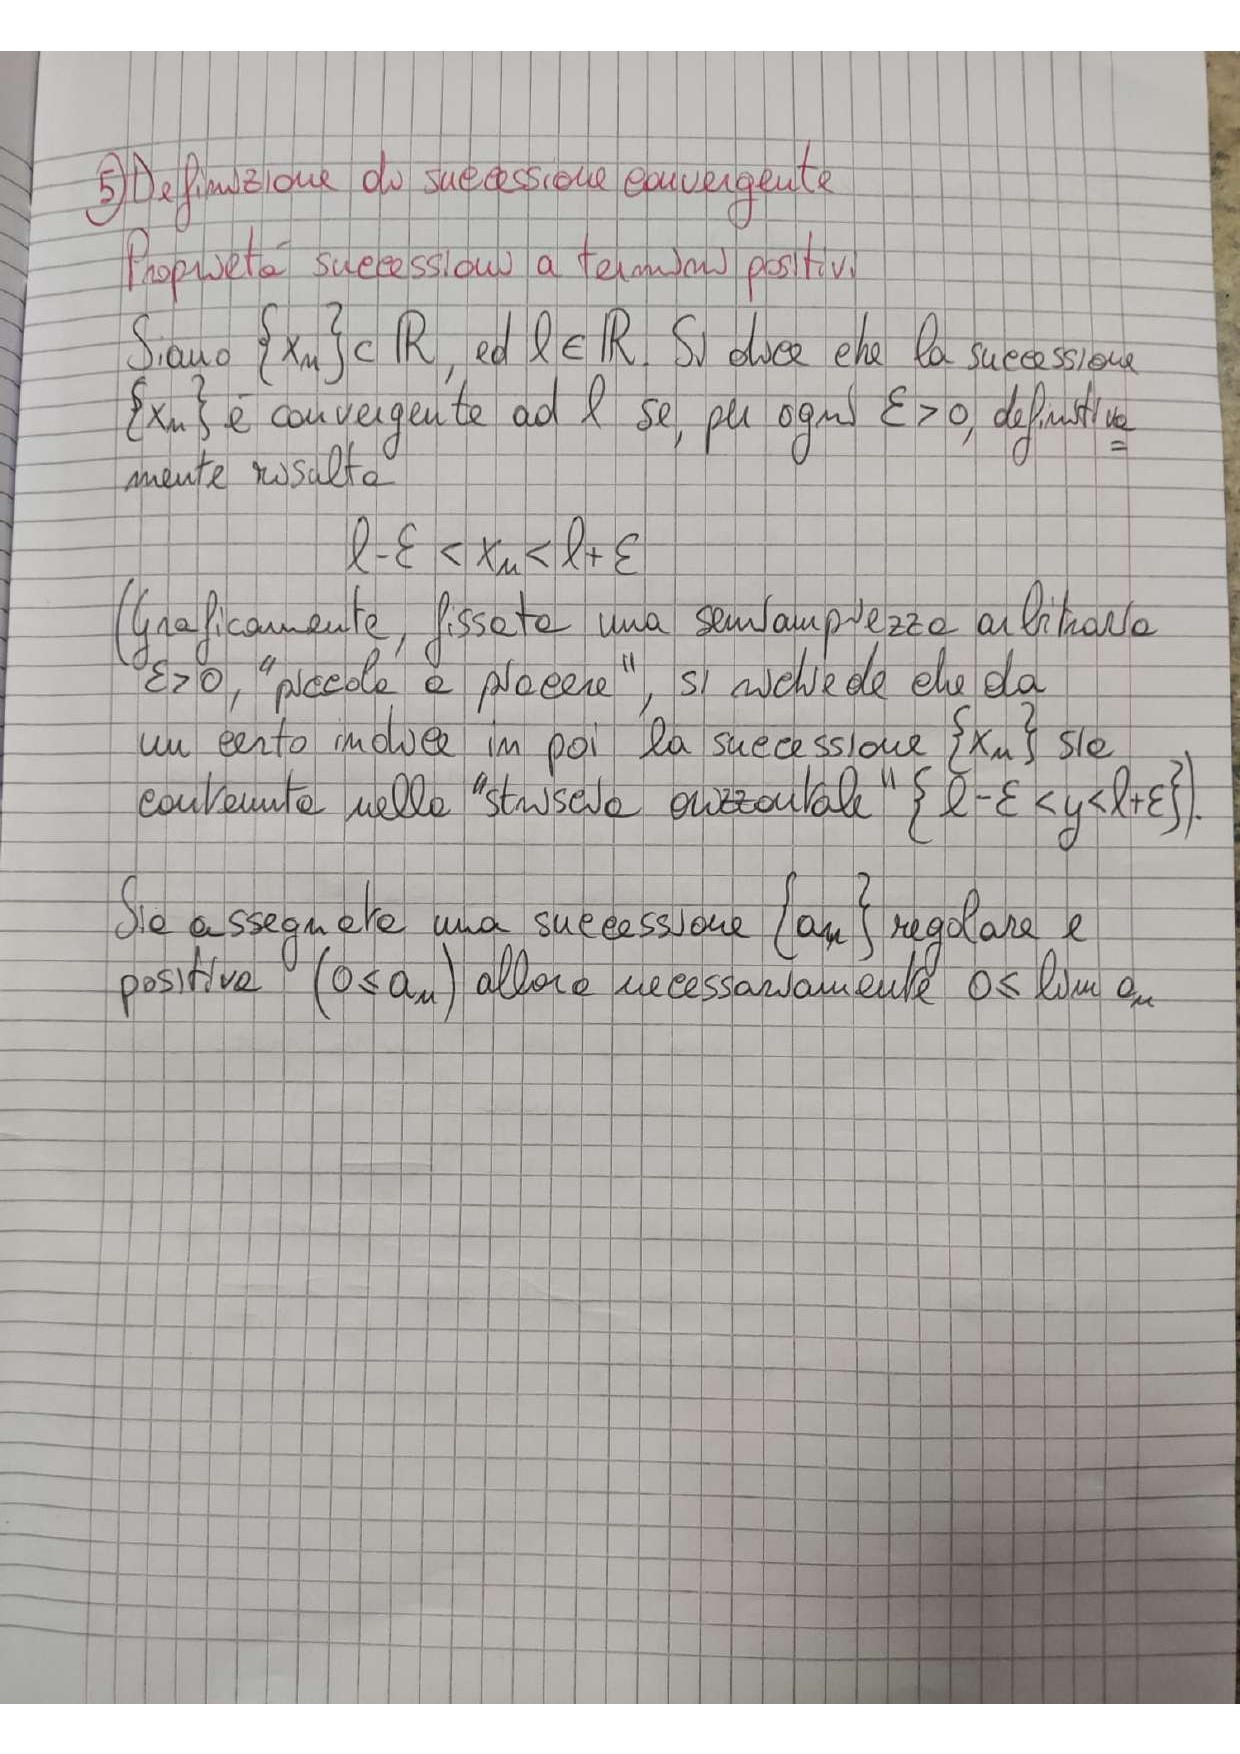 5) Definizione di successione convergente
Proprietà successioni a termini positivi
Siano {xn} ⊂ ℝ, ed l ∈ ℝ. Si dice che la successione
{xn} è convergente ad l se, per ogni ε > 0, definitiva
mente risulta
l - ε < xn < l + ε
(Graficamente, fissata una semiampiezza arbitraria
ε > 0, "piccola a piacere", si richiede che da
un certo indice in poi la successione {xn} sia
contenuta nella "striscia orizzontale" {l - ε < y < l + ε}).
Sia assegnata una successione {an} regolare e
positiva (0 ≤ an) allora necessariamente 0 ≤ lim an